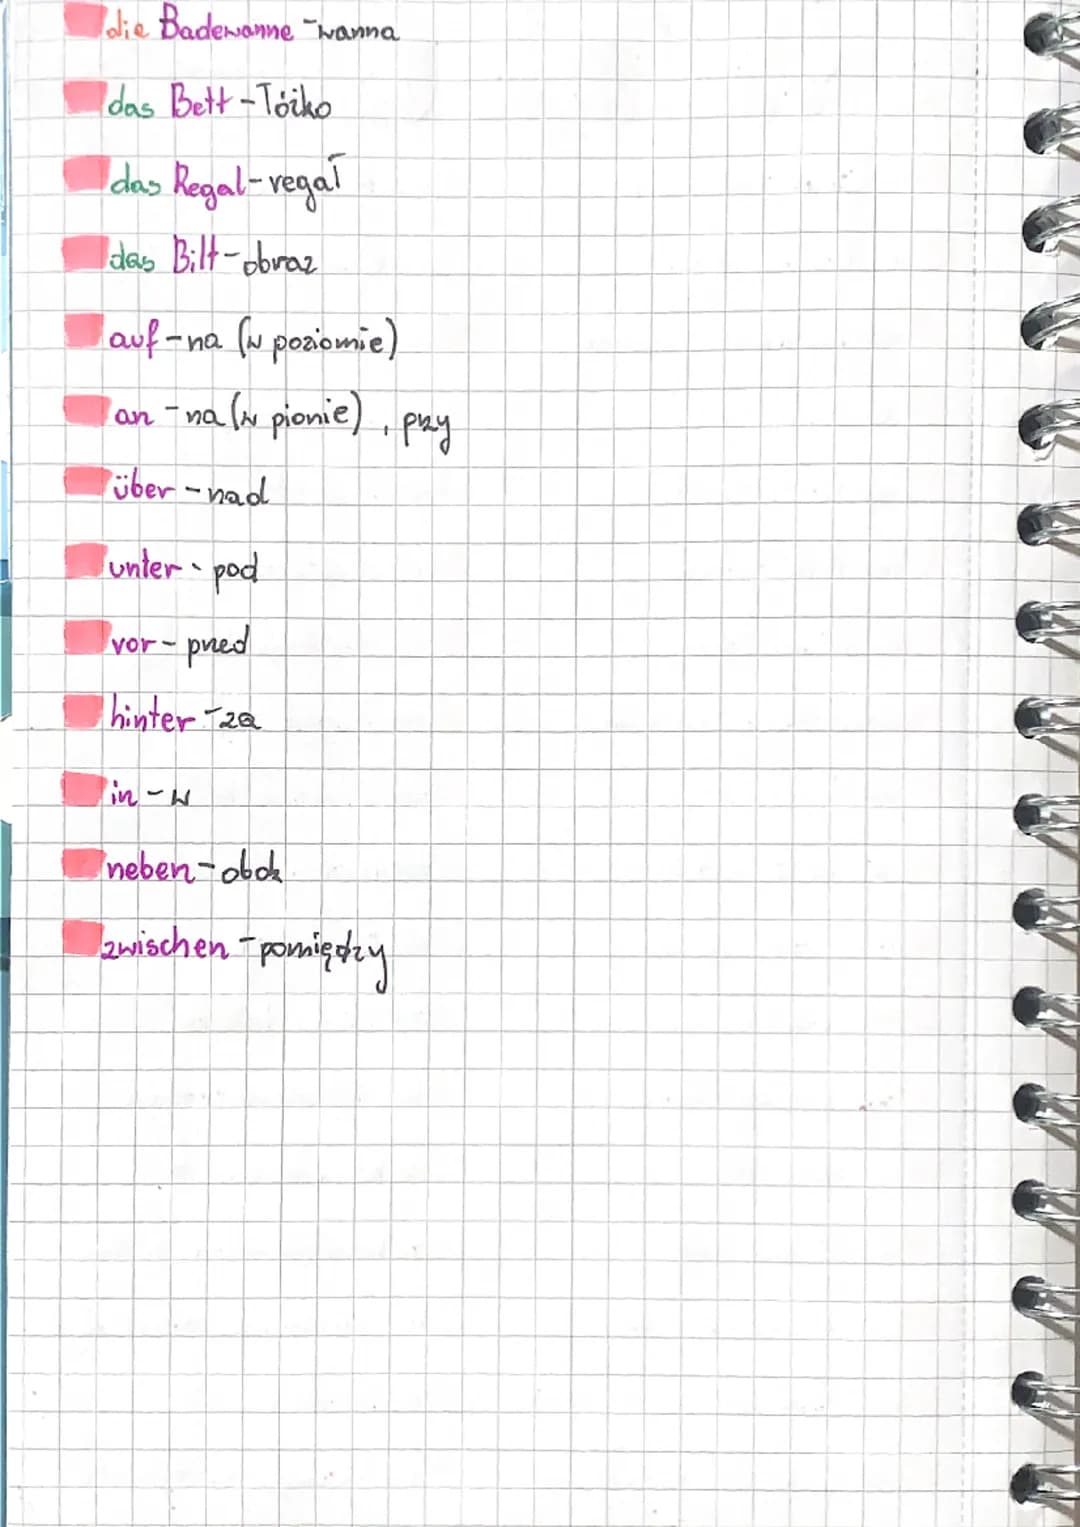 die Badewanne - wanna
das Bett - Łóżko
das Regal - regał
das Bilt - obraz
auf - na (w poziomie)
an - na (w pionie), przy
über - nad
unter - pod
vor - przed
hinter - za
in - w
neben - obok
zwischen - pomiędzy